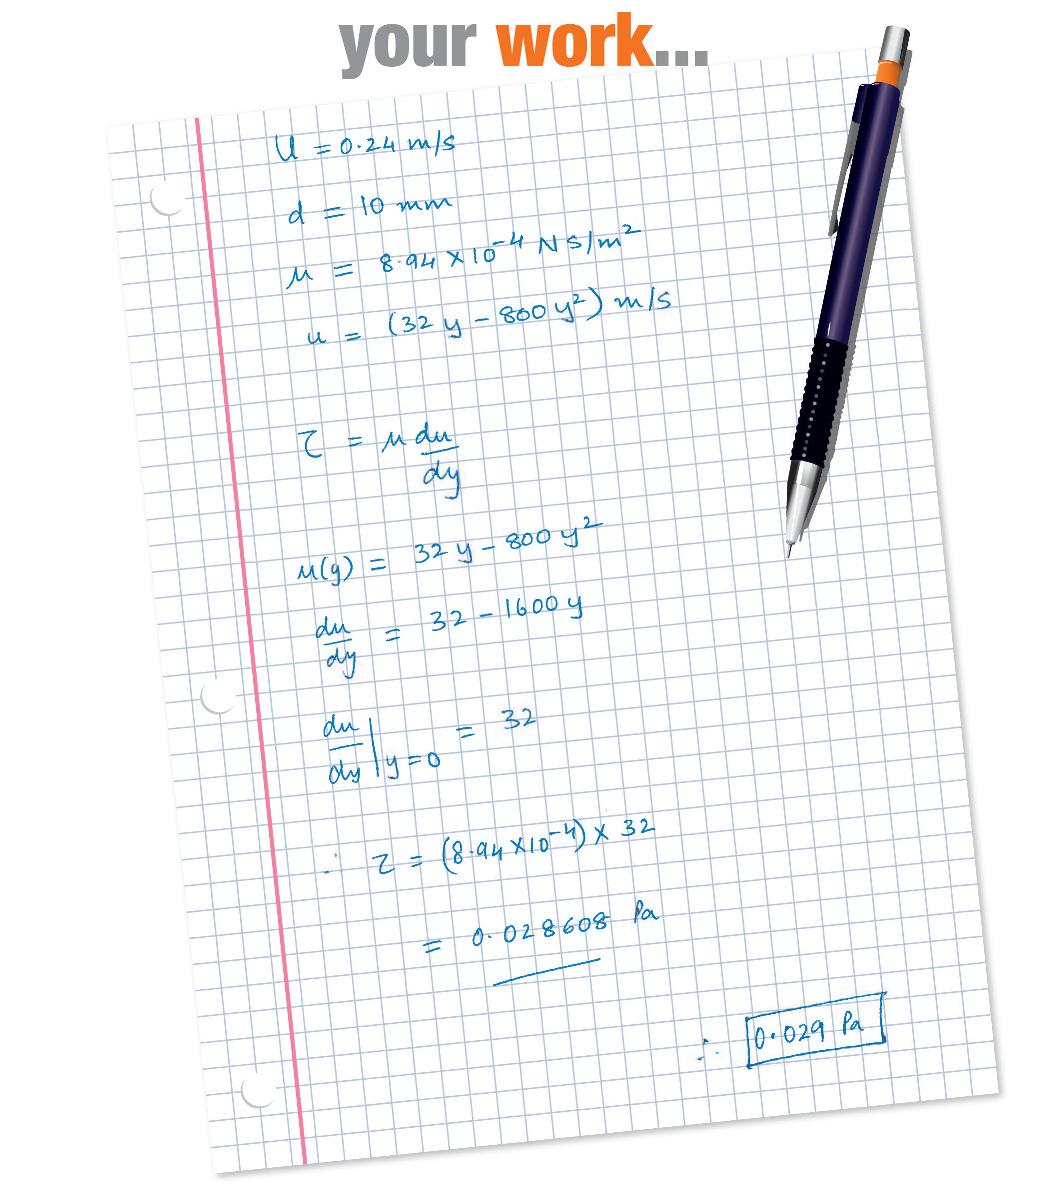 your work...
U = 0.24 m/s
d = 10 mm
μ = 8.94 × 10⁻⁴ N s/m²
u = (32 y - 800 y²) m/s
τ = μ du/dy
u(y) = 32 y - 800 y²
du/dy = 32 - 1600 y
du/dy | y=0 = 32
∴ τ = (8.94 × 10⁻⁴) × 32
= 0.028608 Pa
∴ 0.029 Pa